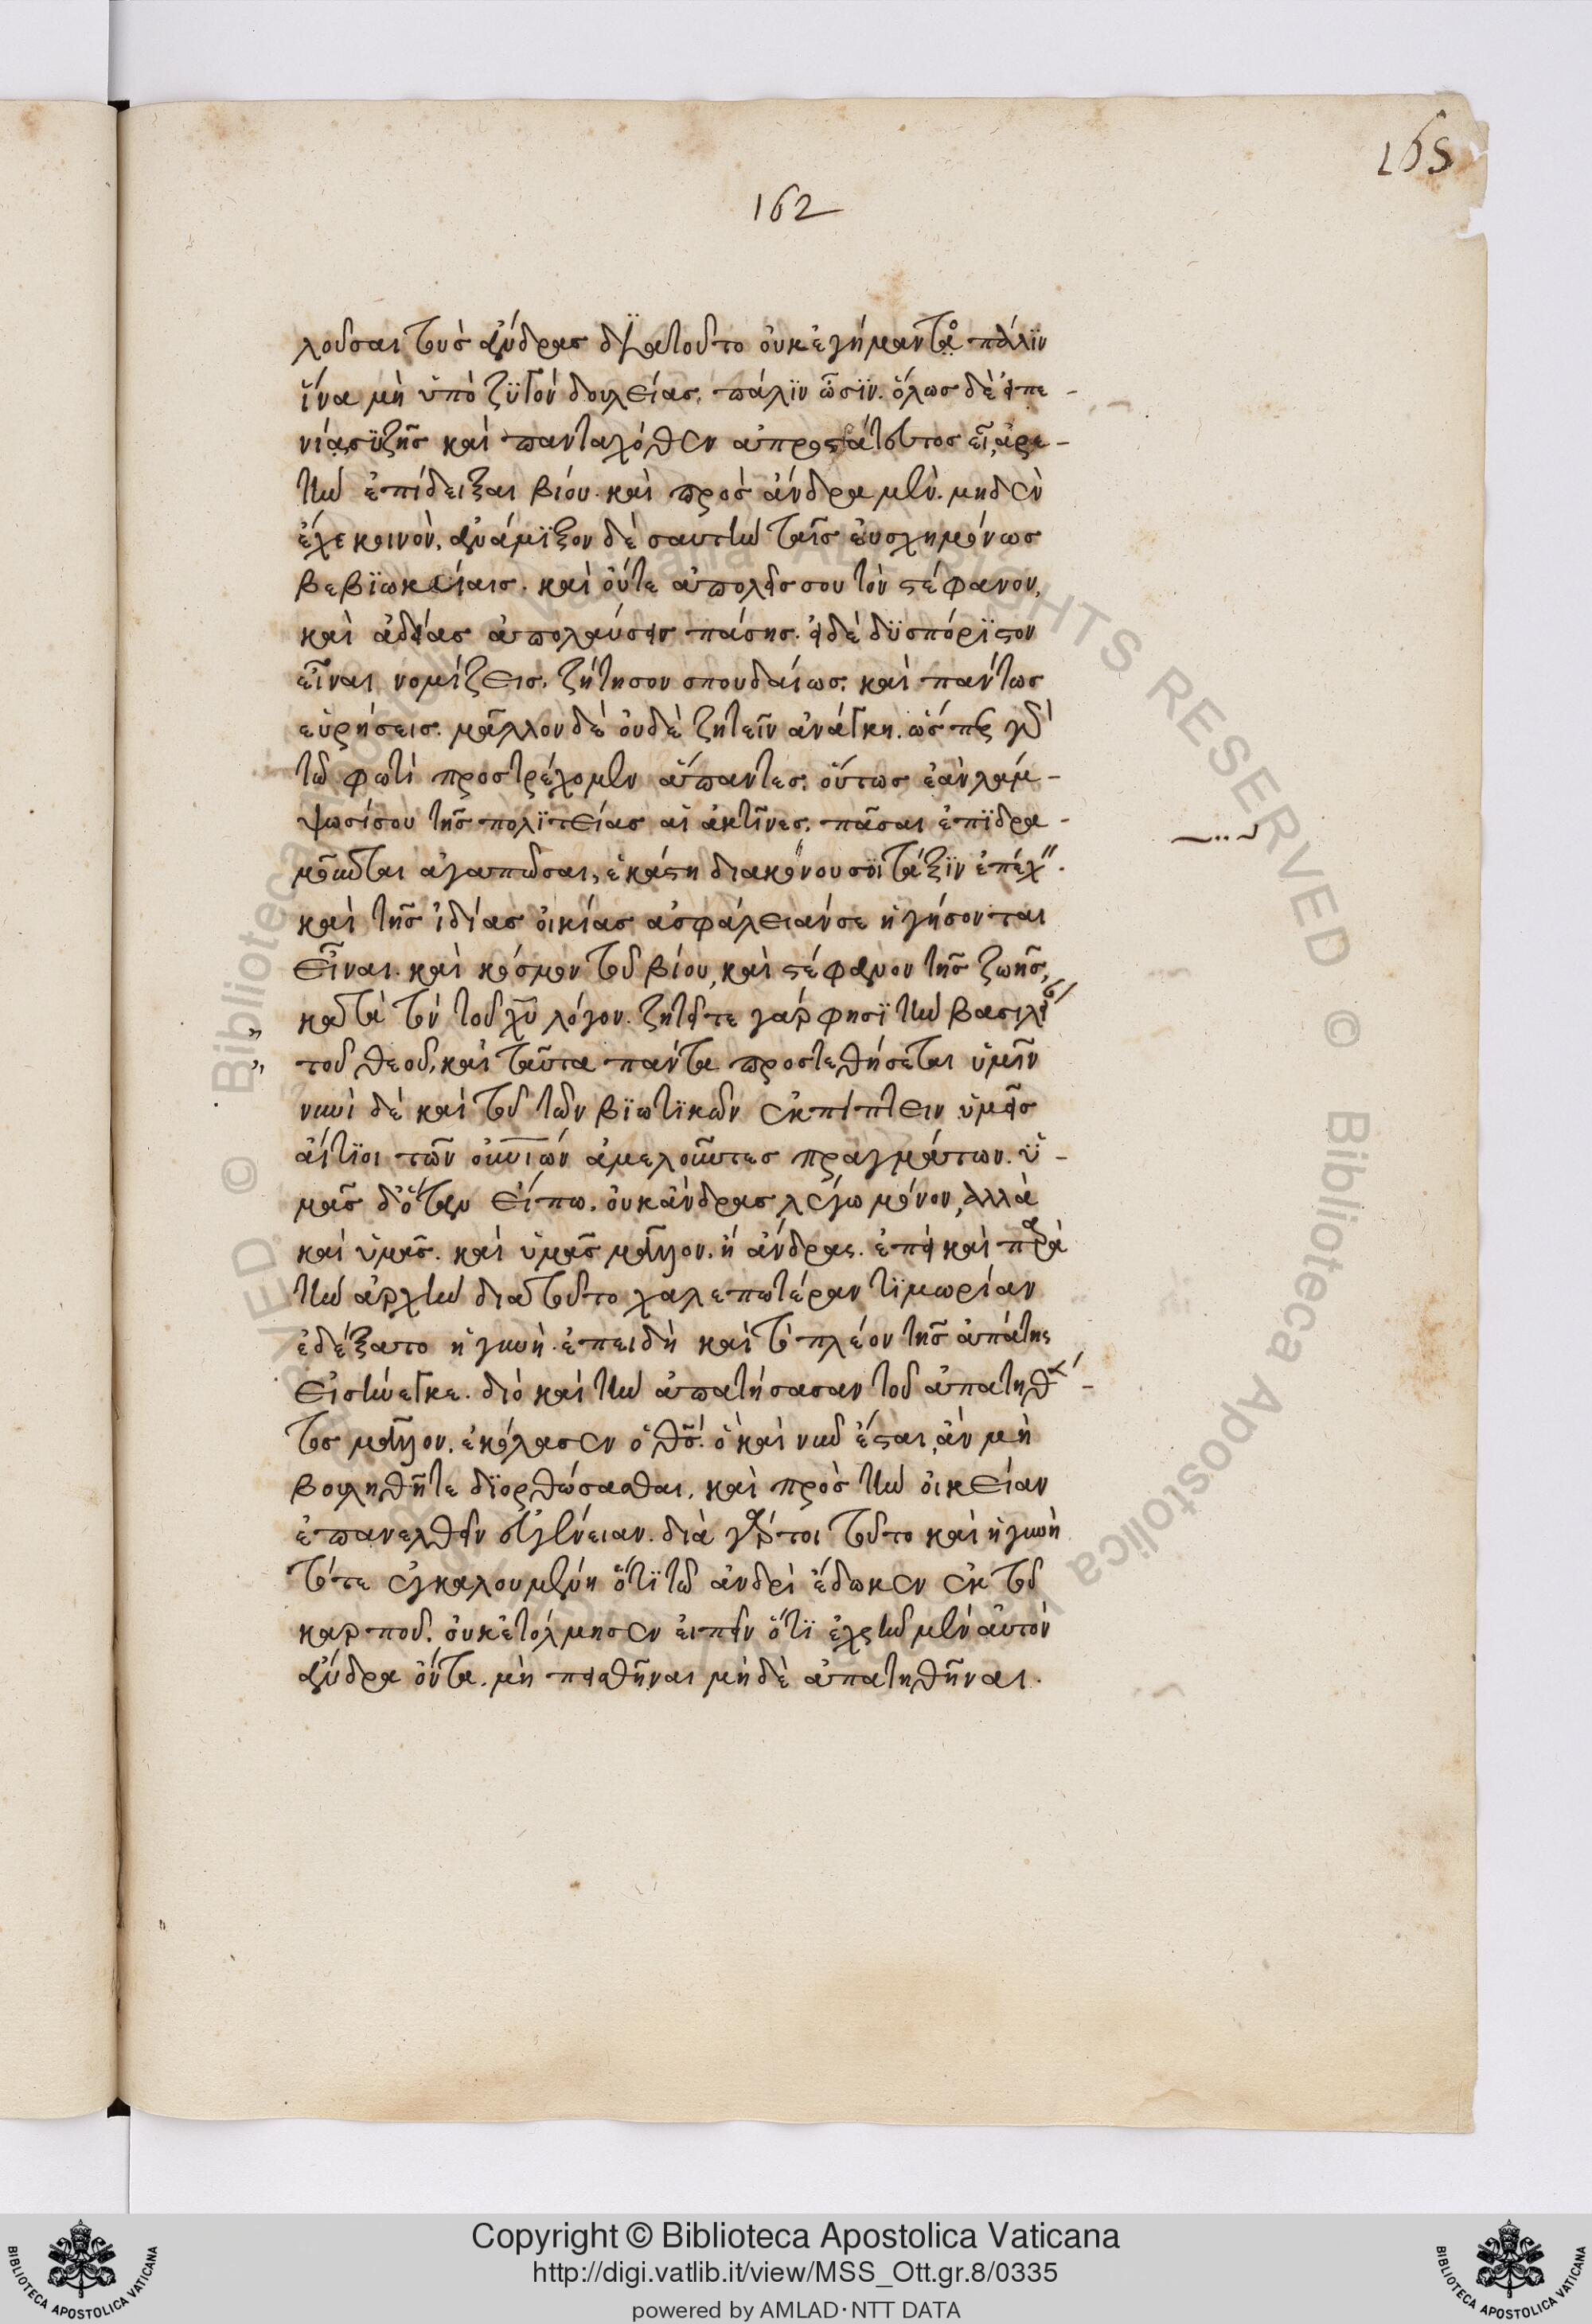 165
162
λοῦσαι τοὺς ἄνδρας διατοῦτο οὐκ ἐγήμαντο πάλϊν
ἵνα μὴ ὑπὸ ζϋγὸν δουλείας, πάλϊν ὦσϊν. ὅλως δὲ εἰ πε -
νίας ϋζῆς καὶ πανταχόθεν εἶ, ἀρε -
τὴν ἐπίδειξαι βίου. καὶ πρὸς ἄνδρα μὲν. μηδὲν
ἔχε κοινὸν, ἀνάμϊξον δὲ σαυτὴν ταῖς εὐσχημόνως
βεβϊωκυίαις. καὶ οὔτε ἀπολεῖς σου τὸν στέφανον,
καὶ ἀδείας ἀπολαύσεις πάσης. εἰ δὲ δϋσπόρϊστον
εἶναι νομίζεις, ζήτησον σπουδαίως, καὶ πάντως
εὑρήσεις. μᾶλλον δὲ οὐδὲ ζητεῖν ἀνάγκη. ὥσπερ γὰρ
τῶ φωτὶ προστρέχομεν ἅπαντες, οὕτως ἐὰν λάμ -
ψωσί σου τῆς πολϊτείας αἱ ἀκτῖνες, πᾶσαι ἐπϊδρα -
μοῦνται ἀγαπῶσαι, ἑκάστη διακόνου σοι τάξϊν ἐπέχειν.
καὶ τῆς ἰδίας οἰκίας ἀσφάλειάν σε ἡγήσονται
εἶναι. καὶ κόσμον τοῦ βίου, καὶ στέφανον τῆς ζωῆς,
„ κατὰ τὸν τοῦ χυ λόγον. ζητεῖτε γάρ φησϊ τὴν βασιλείαν
„ τοῦ θεοῦ, καὶ ταῦτα πάντα προστεθήσεται ὑμῖν
νυνὶ δὲ καὶ τοῦ τῶν βϊωτϊκῶν ἐκπίπτειν ὑμεῖς
αἴτϊοι τῶν οὐνιῶν ἀμελοῦντες πραγμάτων. ὑ -
μᾶς δ' ὅταν εἴπω, οὐκ ἄνδρας λέγω μόνον, ἀλλὰ
καὶ ὑμᾶς. καὶ ὑμᾶς μᾶλλον, ἢ ἄνδρας. ἐπεὶ καὶ παρὰ
τὴν ἀρχὴν διατοῦτο χαλεπωτέραν τϊμωρίαν
ἐδέξατο ἡ γυνή. ἐπειδὴ καὶ τὸ πλέον τῆς ἀπάτης
εἰσήνεγκε. διὸ καὶ τὴν ἀπατήσασαν τοῦ ἀπατηθέν -
τος μᾶλλον, ἐκόλασεν ὁ θς. ὃ καὶ νῦν ἔσται, ἂν μὴ
βουληθῆτε δϊορθώσασθαι, καὶ πρὸς τὴν οἰκείαν
ἐπανελθεῖν εὐγένειαν. διὰ γάρ τοι τοῦτο καὶ ἡ γυνὴ
τότε ἐγκαλουμένη ὅτϊ τῶ ἀνδρὶ ἔδωκεν ἐκ τοῦ
καρποῦ, οὐκ ἐτόλμησεν εἰπεῖν ὅτϊ ἐχρῆν μὲν αὐτὸν
ἄνδρα ὄντα, μὴ πεισθῆναι μὴδὲ ἀπατηθῆναι.
Copyright © Biblioteca Apostolica Vaticana
http://digi.vatlib.it/view/MSS_Ott.gr.8/0335
powered by AMLAD·NTT DATA